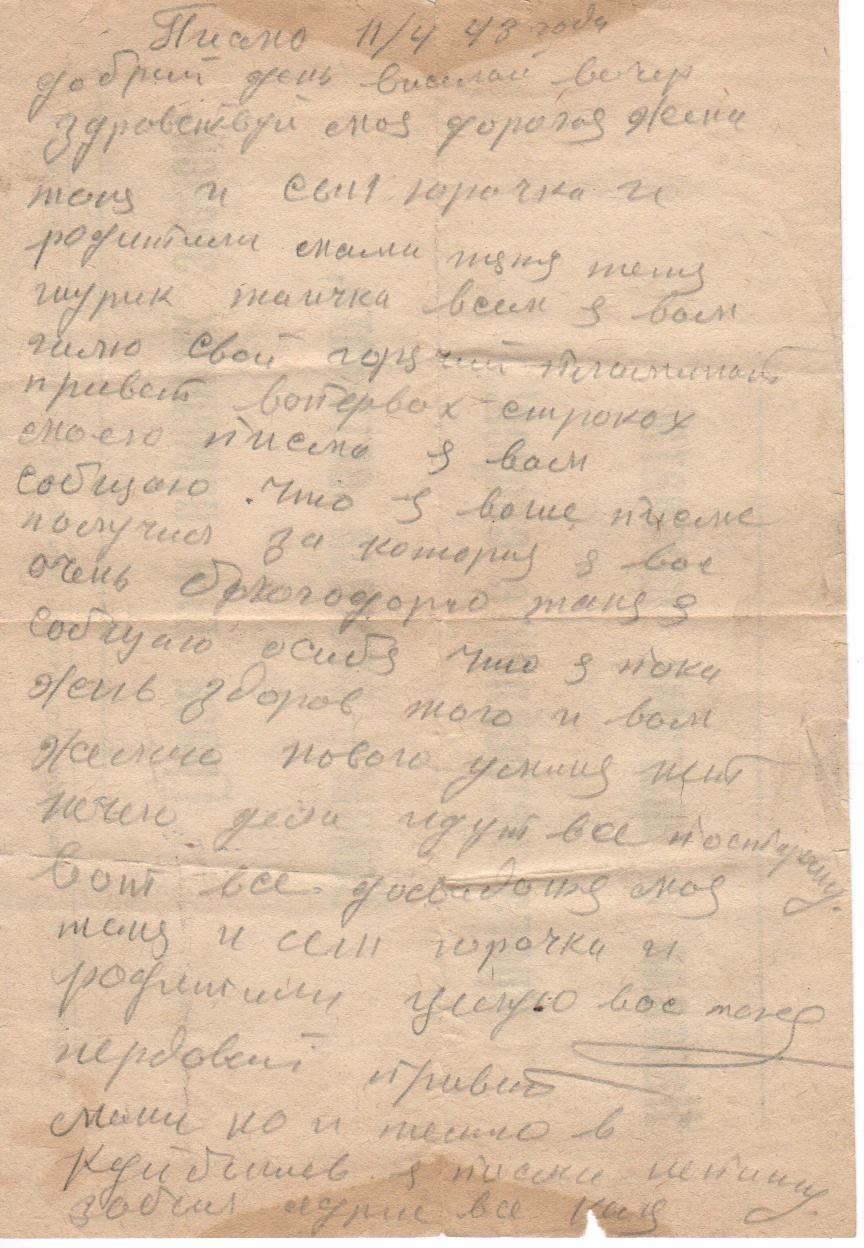 Писмо 11/4 43 года
добрий день висилай вечер
здровствуй моя дорогая жена
таня и сын юрочка и
родитили мами таня
шурик таичка всем я вам
шлю свой горячий пламиной
привет вопервох строках
моего писма я вам
собщаю что я ваше писме
получил за котория я вас
очень благодорю таня я
собщаю осибя что я пока
жив здоров того и вам
желаю нового у миня нет
нечего дела идут все постарому.
Вот все досвидоня моя
таня и сын юрочка и
родитили целую вас таня
пердовай привет
мани ко и в
Куйбишев я писма непишу.
забил адрис все каля